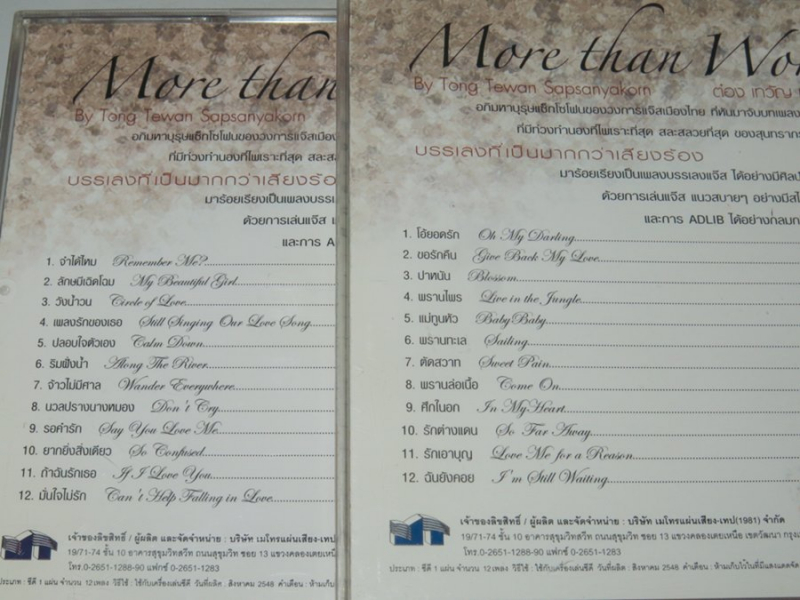 More than
By Tong Tewan Sapsanyakorn
อภิมหาบุรุษแซ็กโซโฟนของวงการแจ๊สเมือง
ที่มีท่วงทำนองที่ไพเราะที่สุด สละสล
บรรเลงที่เป็นมากกว่าเสียงร้อง
มาร้อยเรียงเป็นเพลงบรรเ
ด้วยการเล่นแจ๊ส แ
และการ A
1. จำได้ไหม Remember Me?
2. ลักษมีเฉิดโฉม My Beautiful Girl
3. วังน้ำวน Circle of Love
4. เพลงรักของเธอ Still Singing Our Love Song
5. ปลอบใจตัวเอง Calm Down
6. ริมฝั่งน้ำ Along The River
7. จ้าวไม่มีศาล Wander Everywhere
8. นวลปรางนางหมอง Don't Cry
9. รอคำรัก Say You Love Me
10. ยากยิ่งสิ่งเดียว So Confused
11. ถ้าฉันรักเธอ If I Love You
12. มั่นใจไม่รัก Can't Help Falling in Love
เจ้าของลิขสิทธิ์ / ผู้ผลิต และจัดจำหน่าย : บริษัท เมโทรแผ่นเสียง-เทป
19/71-74 ชั้น 10 อาคารสุขุมวิทสวีท ถนนสุขุมวิท ซอย 13 แขวงคลองเตยเหนือ
โทร.0-2651-1288-90 แฟกซ์ 0-2651-1283
ประเภท : ซีดี 1 แผ่น จำนวน 12 เพลง วิธีใช้ : ใช้กับเครื่องเล่นซีดี วันที่ผลิต : สิงหาคม 2548 คำเตือน : ห้ามเก็บ
More than Wor
By Tong Tewan Sapsanyakorn ต๋อง เทวัญ
อภิมหาบุรุษแซ็กโซโฟนของวงการแจ๊สเมืองไทย ที่หันมาจับบทเพลง
ที่มีท่วงทำนองที่ไพเราะที่สุด สละสลวยที่สุด ของสุนทราภร
บรรเลงที่เป็นมากกว่าเสียงร้อง
มาร้อยเรียงเป็นเพลงบรรเลงแจ๊ส ได้อย่างมีศิลป
ด้วยการเล่นแจ๊ส แนวสบายๆ อย่างมีสไ
และการ ADLIB ได้อย่างกลมก
1. โอ้ยอดรัก Oh My Darling
2. ขอรักคืน Give Back My Love
3. ปาหนัน Blossom
4. พรานไพร Live in the Jungle
5. แม่ทูนหัว Baby Baby
6. พรานทะเล Sailing
7. ตัดสวาท Sweet Pain
8. พรานล่อเนื้อ Come On
9. ศึกในอก In My Heart
10. รักต่างแดน So Far Away
11. รักเอาบุญ Love Me for a Reason
12. ฉันยังคอย I'm Still Waiting
เจ้าของลิขสิทธิ์ / ผู้ผลิต และจัดจำหน่าย : บริษัท เมโทรแผ่นเสียง-เทป(1981) จำกัด
19/71-74 ชั้น 10 อาคารสุขุมวิทสวีท ถนนสุขุมวิท ซอย 13 แขวงคลองเตยเหนือ เขตวัฒนา กรุงเ
โทร.0-2651-1288-90 แฟกซ์ 0-2651-1283
ประเภท : ซีดี 1 แผ่น จำนวน 12 เพลง วิธีใช้ : ใช้กับเครื่องเล่นซีดี วันที่ผลิต : สิงหาคม 2548 คำเตือน : ห้ามเก็บไว้ในที่มีแสงแดดจัด